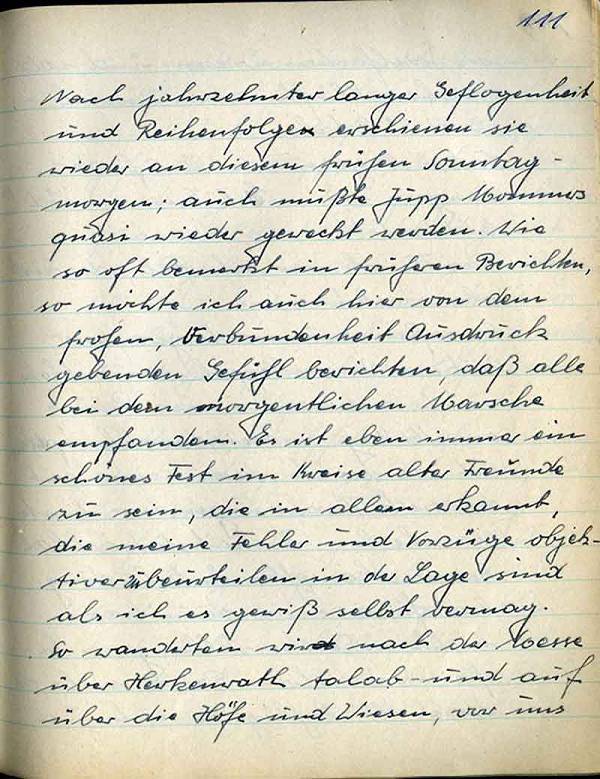 111
Nach jahrzehnter langer Geflogenheit
und Reihenfolgen erschienen sie
wieder an diesem frühen Sonntag-
morgen; auch mußte Jupp Mommers
quasi wieder geweckt werden. Wie
so oft bemerkt in früheren Berichten,
so möchte ich auch hier von dem
frohen, Verbundenheit Ausdruck
gebenden Gefühl berichten, daß alle
bei dem morgentlichen Marsche
empfanden. Es ist eben immer ein
schönes Fest im Kreise alter Freunde
zu sein, die in allem erkannt,
die meine Fehler und Vorzüge objek-
tiver zu beurteilen in der Lage sind
als ich es gewiß selbst vermag.
So wanderten wir nach der Messe
über Herkenrath talab- und auf
über die Höfe und Wiesen, vor uns